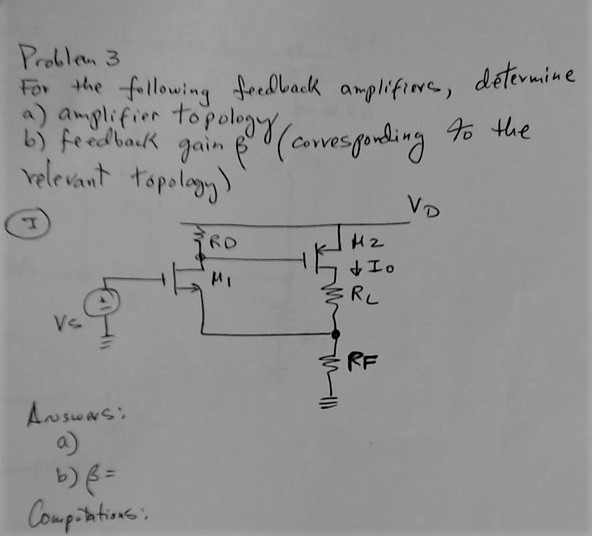 Problem 3
For the following feedback amplifiers, determine
a) amplifier topology
b) feedback gain β (corresponding to the
relevant topology)
I
VD
RD
M2
↓ Io
M1
RL
Vs
RF
Answers:
a)
b) β =
Computations: